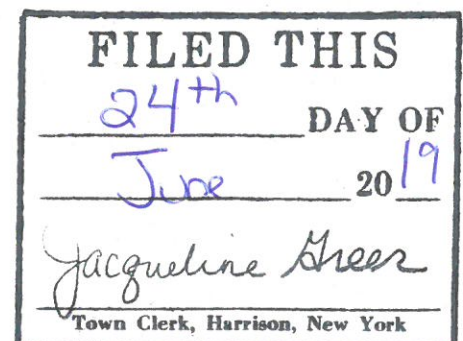 FILED THIS
24th DAY OF
June 2019
Jacqueline Greer
Town Clerk, Harrison, New York